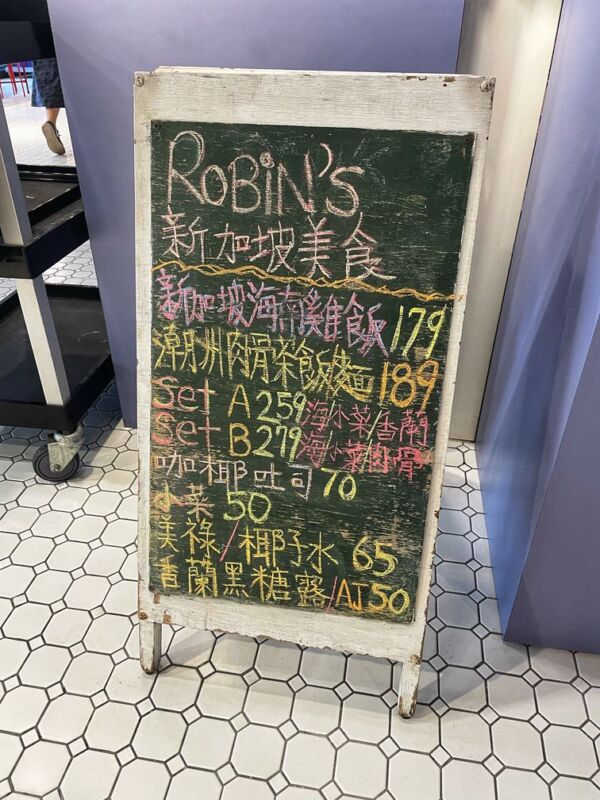 ROBiN'S
新加坡美食
新加坡海南雞飯 179
潮洲肉骨茶飯/麵 189
Set A 259 海/小菜/香蘭
Set B 279 海/小菜/肉骨
咖椰吐司 70
小菜 50
美祿/椰子水 65
香蘭黑糖露/AJ 50